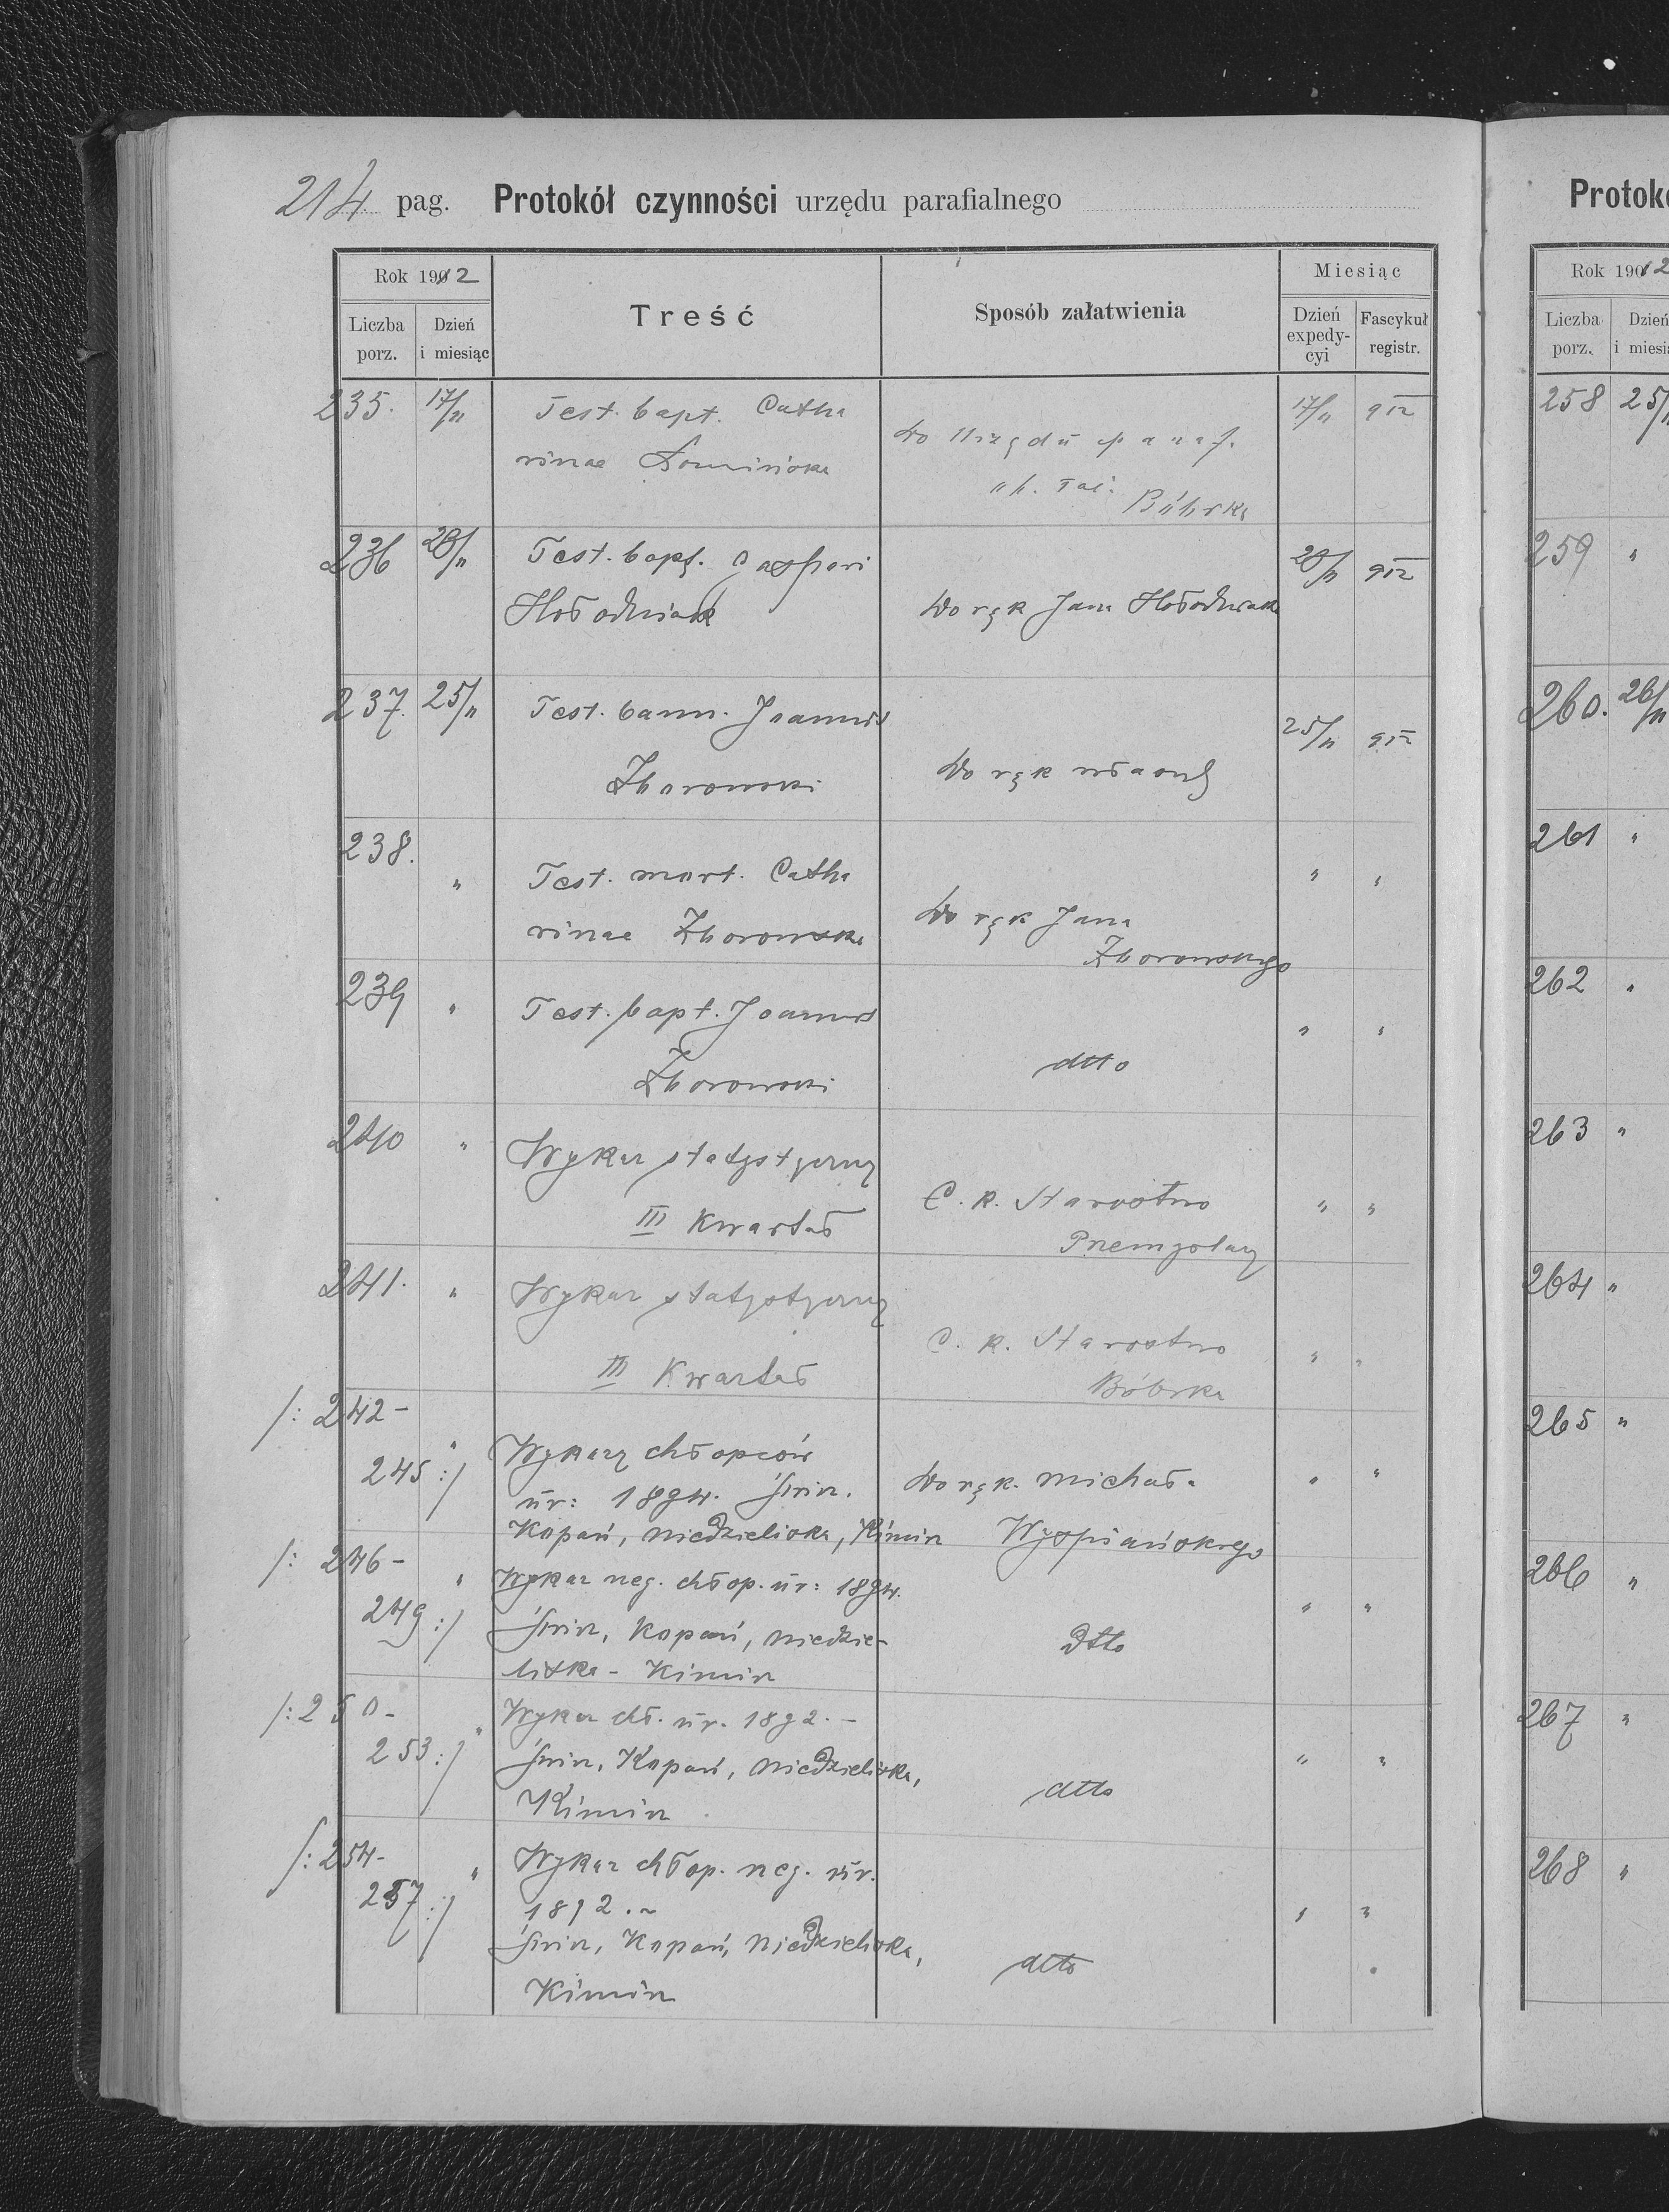 214 pag. Protokół czynności urzędu parafialnego
Rok 1912
Liczba porz.
Dzień i miesiąc
Treść
Sposób załatwienia
Miesiąc
Dzień expedycyi
Fascykuł registr.
235. 17/11 Test. bapt. Catha 17/11 912
rinae Do Urzędu paraf.
Bóbrka
236 20/11 Test. bapt. Caspari 20/11 912
Hołodniak Do ręk Jana Hołodniaka
237. 25/11 Test. bann. Joannis 25/11 912
Zborowski Do ręk
238. " Test. mort. Catha " "
rinae Zborowska Do ręk Jana
Zborowskiego
239 " Test. bapt. Joannis " "
Zborowski dtto
240 " Wykaz statystyczny
III Kwartał C. k. Starostwo " "
Przemyślany
241. " Wykaz statystyczny
III Kwartał C. k. Starostwo " "
Bóbrka
/: 242 -
245 :/ " Wykazy chłopców
ur: 1894. Świrz. Do ręk. Michała " "
Kopań, Niedzieliska, Kimirz Wyspiańskiego
/: 246 - " Wykaz neg. chłop. ur: 1894.
249 :/ Świrz, Kopań, Niedzie- Dtto " "
liska - Kimirz
/: 250 - " Wykaz chł. ur. 1892. -
253 :/ Świrz, Kopań, Niedzieliska, " "
Kimirz dtto
/: 254 - " Wykaz chłop. neg. ur.
257 :/ 1892. - " "
Świrz, Kopań, Niedzieliska, dtto
Kimirz
Protoko
Rok 1912
Liczba porz.
Dzień
i miesi
258 25/1
259 "
260. 26/11
261 "
262 "
263 "
264 "
265 "
266 "
267 "
268 "